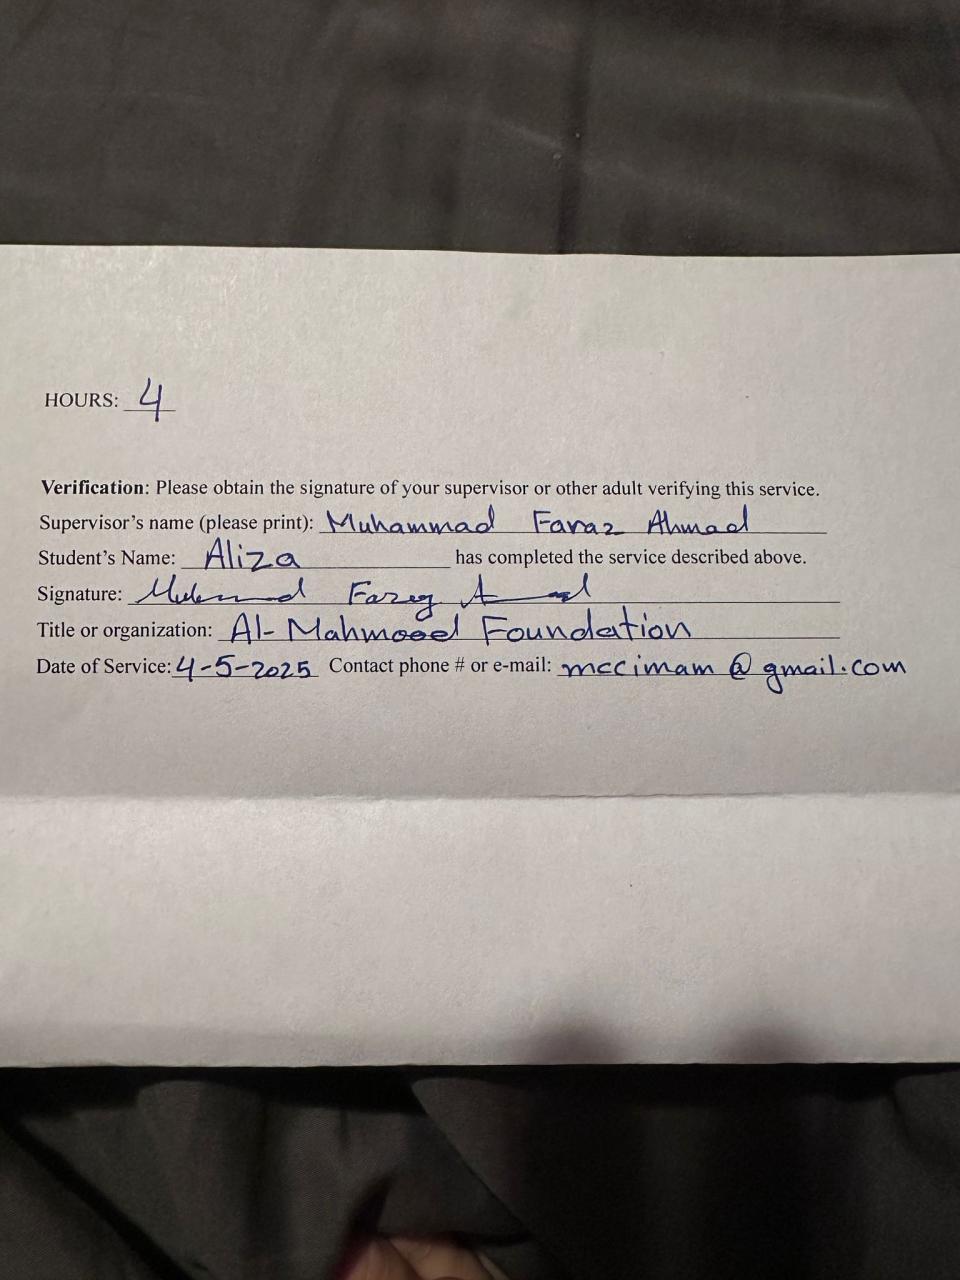 HOURS: 4
Verification: Please obtain the signature of your supervisor or other adult verifying this service.
Supervisor's name (please print): Muhammad Faraz Ahmad
Student's Name: Aliza has completed the service described above.
Signature: Faraz
Title or organization: Al-Mahmood Foundation
Date of Service: 4-5-2025 Contact phone # or e-mail: mccimam@gmail.com